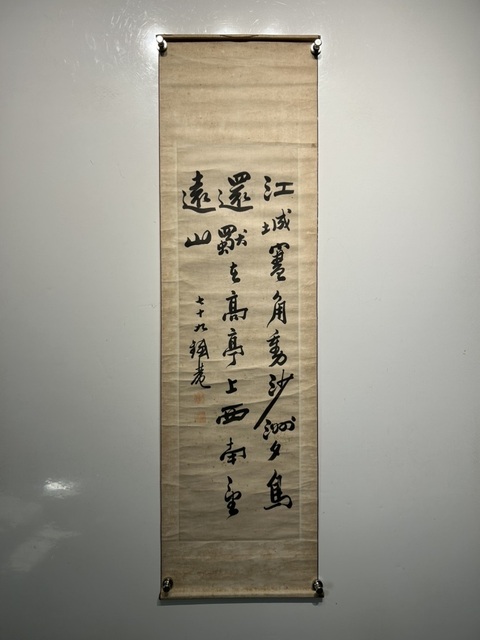 江城寒角動沙洲夕鳥
還獨在高亭上西南望
遠山
七十九